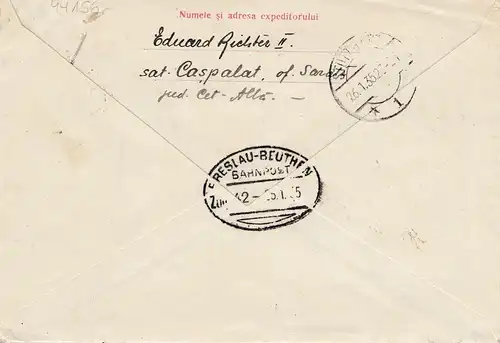 44156
Numele și adresa expeditorului
Eduard Richter II.
sat. Caspalat, of. Sarata
jud. Cet-Albă. —
26.1.35
* 1
BRESLAU-BEUTHEN
BAHNPOST
Zug 42 – 25.1.35